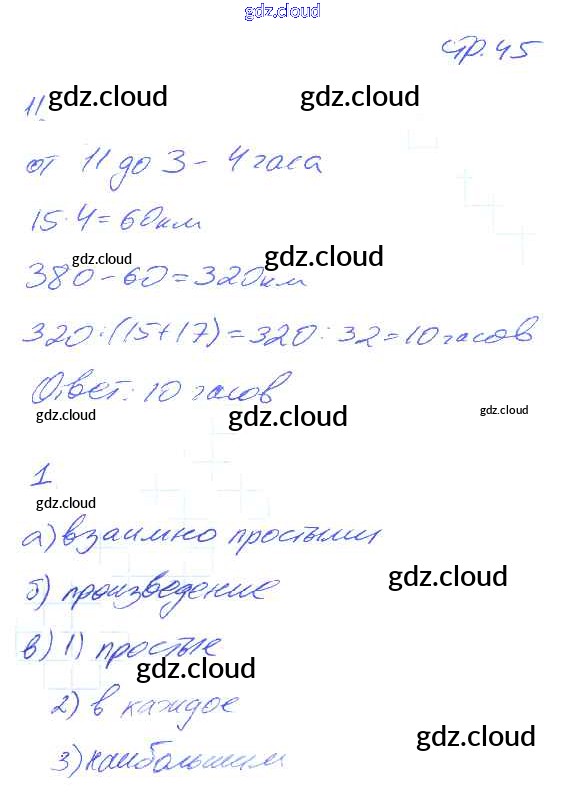 gdz.cloud
стр. 45
11. gdz.cloud gdz.cloud
от 11 до 3 - 4 часа
15·4=60км
gdz.cloud gdz.cloud
380-60=320км
320:(15+17)=320:32=10 часов
Ответ: 10 часов
gdz.cloud gdz.cloud gdz.cloud
1
gdz.cloud
а) взаимно простыми
gdz.cloud
б) произведение
в) 1) простые
gdz.cloud
2) в каждое
gdz.cloud
3) наибольшим